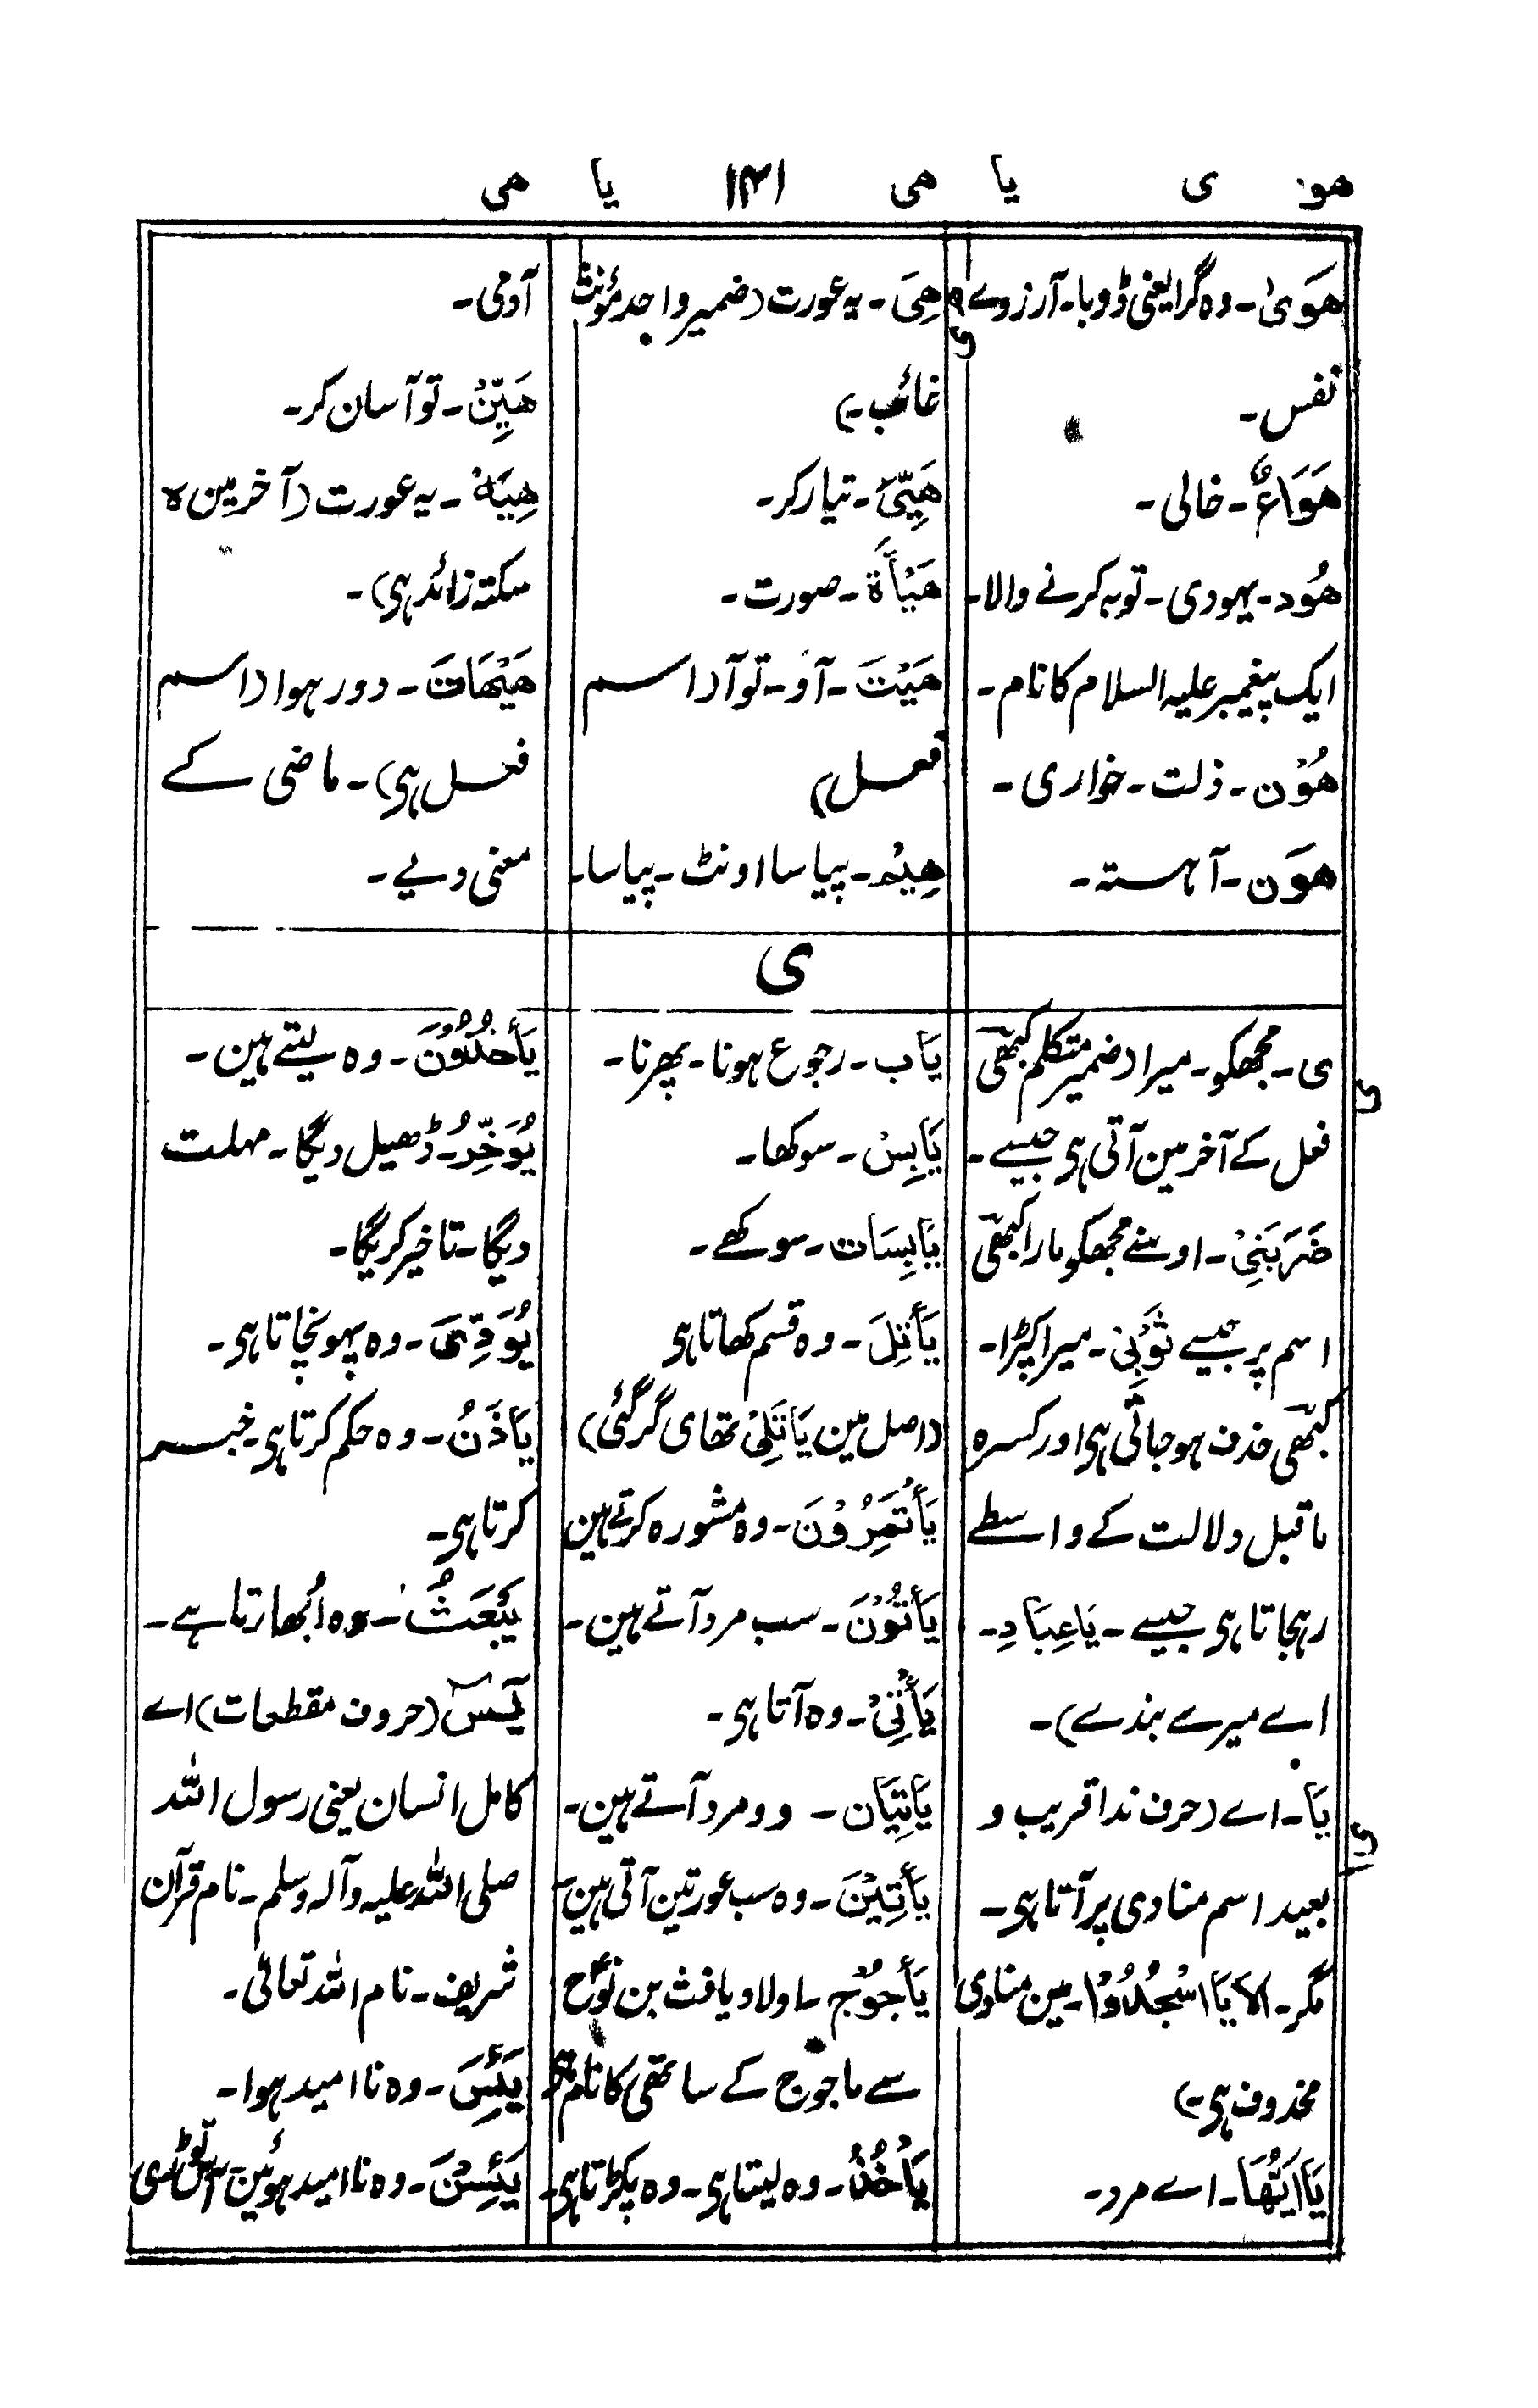 هو ی یا هی ۱۴۱ یا هی
هَوىٰ۔ وہ گرا یعنی ڈوبا۔ آرزوے
نفس۔
هَوَاءٌ۔ خالی۔
هُود۔ یہودی۔ توبہ کرنے والا۔
ایک پیغمبر علیہ السلام کا نام۔
هُوْن۔ ذلت۔ خواری۔
هَوَن۔ آہستہ۔
هِیَ۔ یہ عورت (ضمیر واحد مؤنث
غائب۔)
هَیِّئْ۔ تیار کر۔
هَیْأَة۔ صورت۔
هَیْتَ۔ آؤ۔ تو آ (اسم
فعل)
هِیْم۔ پیاسا اونٹ۔ پیاسا۔
آدمی۔
هَیِّنْ۔ تو آسان کر۔
هِیَهْ۔ یہ عورت (آخر مین ہ
سکتہ زائد ہی)۔
هَیْهَاتَ۔ دور ہوا (اسم
فعل ہی)۔ ماضی کے
معنی دیے۔
ی
ی۔ مجھکو۔ میرا (ضمیر متکلم کبھی
فعل کے آخر مین آتی ہی جیسے۔
ضَرَبَنِیْ۔ اوسنے مجھکو مارا کبھی
اسم پر جیسے ثَوْبِیْ۔ میرا کپڑا۔
کبھی حذف ہو جاتی ہی اور کسرہ
ما قبل دلالت کے واسطے
رہجاتا ہی جیسے۔ یَاعِبَادِ۔
اے میرے بندے)۔
یَا۔ اے (حرف ندا قریب و
بعید اسم منادی پر آتا ہی۔
مگر۔ الاَ یَا اسْجُدُوْا۔ مین منادی
محذوف ہی۔)
یَا اَیُّهَا۔ اے مرد۔
یَاب۔ رجوع ہونا۔ پھرنا۔
یَابِسْ۔ سوکھا۔
یَابِسَات۔ سوکھے۔
یَأْتَلِ۔ وہ قسم کھاتا ہی
(اصل مین یَأتَلِیْ تھا ی گر گئی)
یَأْتَمِرُوْنَ۔ وہ مشورہ کرتے ہین
یَأْتُوْنَ۔ سب مرد آتے ہین۔
یَأْتِیْ۔ وہ آتا ہی۔
یَأتِیَان۔ دو مرد آتے ہین۔
یَأْتِیْنَ۔ وہ سب عورتین آتی ہین۔
یَأْجُوْج۔ اولاد یافث بن نوح
سے ماجوج کے ساتھی کا نام
یَأْخُذُ۔ وہ لیتا ہی۔ وہ پکڑتا ہی۔
یَأْخُذُوْنَ۔ وہ لیتے ہین۔
یُوَخِّرُ۔ ڈھیل دیگا۔ مہلت
دیگا۔ تاخیر کریگا۔
یُوَدِّیَ۔ وہ پہونچاتا ہی۔
یَأذَنُ۔ وہ حکم کرتا ہی۔ خبر
کرتا ہی۔
یَبْعَثُ۔ وہ اُبھارتا ہے۔
یٰسٓ (حروف مقطعات) اے
کامل انسان یعنی رسول اللہ
صلی اللہ علیہ وآلہ وسلم۔ نام قرآن
شریف۔ نام اللہ تعالی۔
یَئِسَ۔ وہ نا امید ہوا۔
یَئِسْنَ۔ وہ نا امید ہوئین